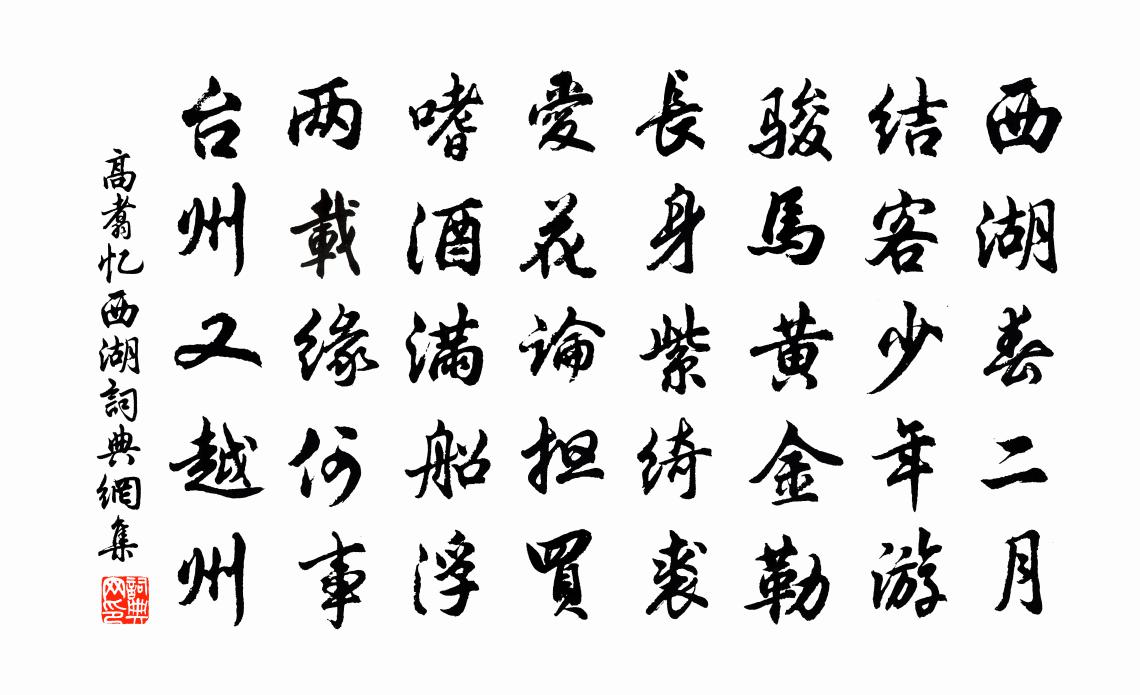 西湖春二月
结客少年游
骏馬黄金勒
長身紫绮裘
愛花論担買
嗜酒满船浮
两載缘何事
台州又越州
高翥忆西湖詞典網集
詞典网印